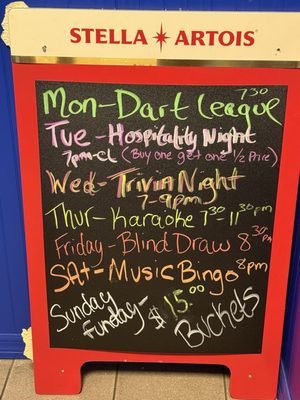 STELLA ★ ARTOIS
7:30
Mon-Dart League
Tue-Hospitality Night
7pm-CL (Buy one get one 1/2 Price)
Wed-Trivia Night
7-9pm
Thur-Karaoke 7:30-11:30pm
Friday-Blind Draw 8:30pm
SAt-Music Bingo 8pm
Sunday Funday-
$15.00
Buckets